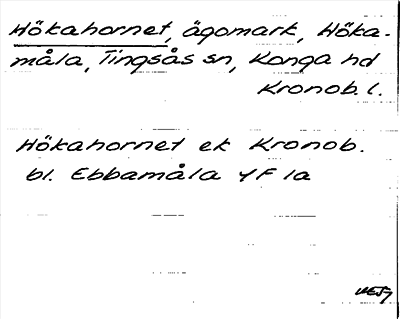 Hökahornet, ägomark, Höka-
måla, Tingsås sn, Konga hd
Kronob. l.
Hökahornet ek Kronob.
bl. Ebbamåla 4F 1a